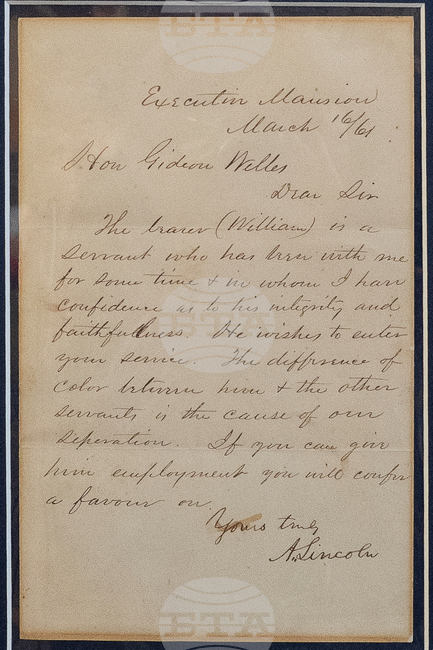 Executive Mansion
March 16/61.
Hon Gideon Welles
Dear Sir
The bearer (William) is a
servant who has been with me
for some time & in whom I have
confidence as to his integrity and
faithfulness. He wishes to enter
your service. The difference of
color between him & the other
servants is the cause of our
seperation. If you can give
him employment you will confer
a favour on.
Yours truly
A. Lincoln
БТА
БТА